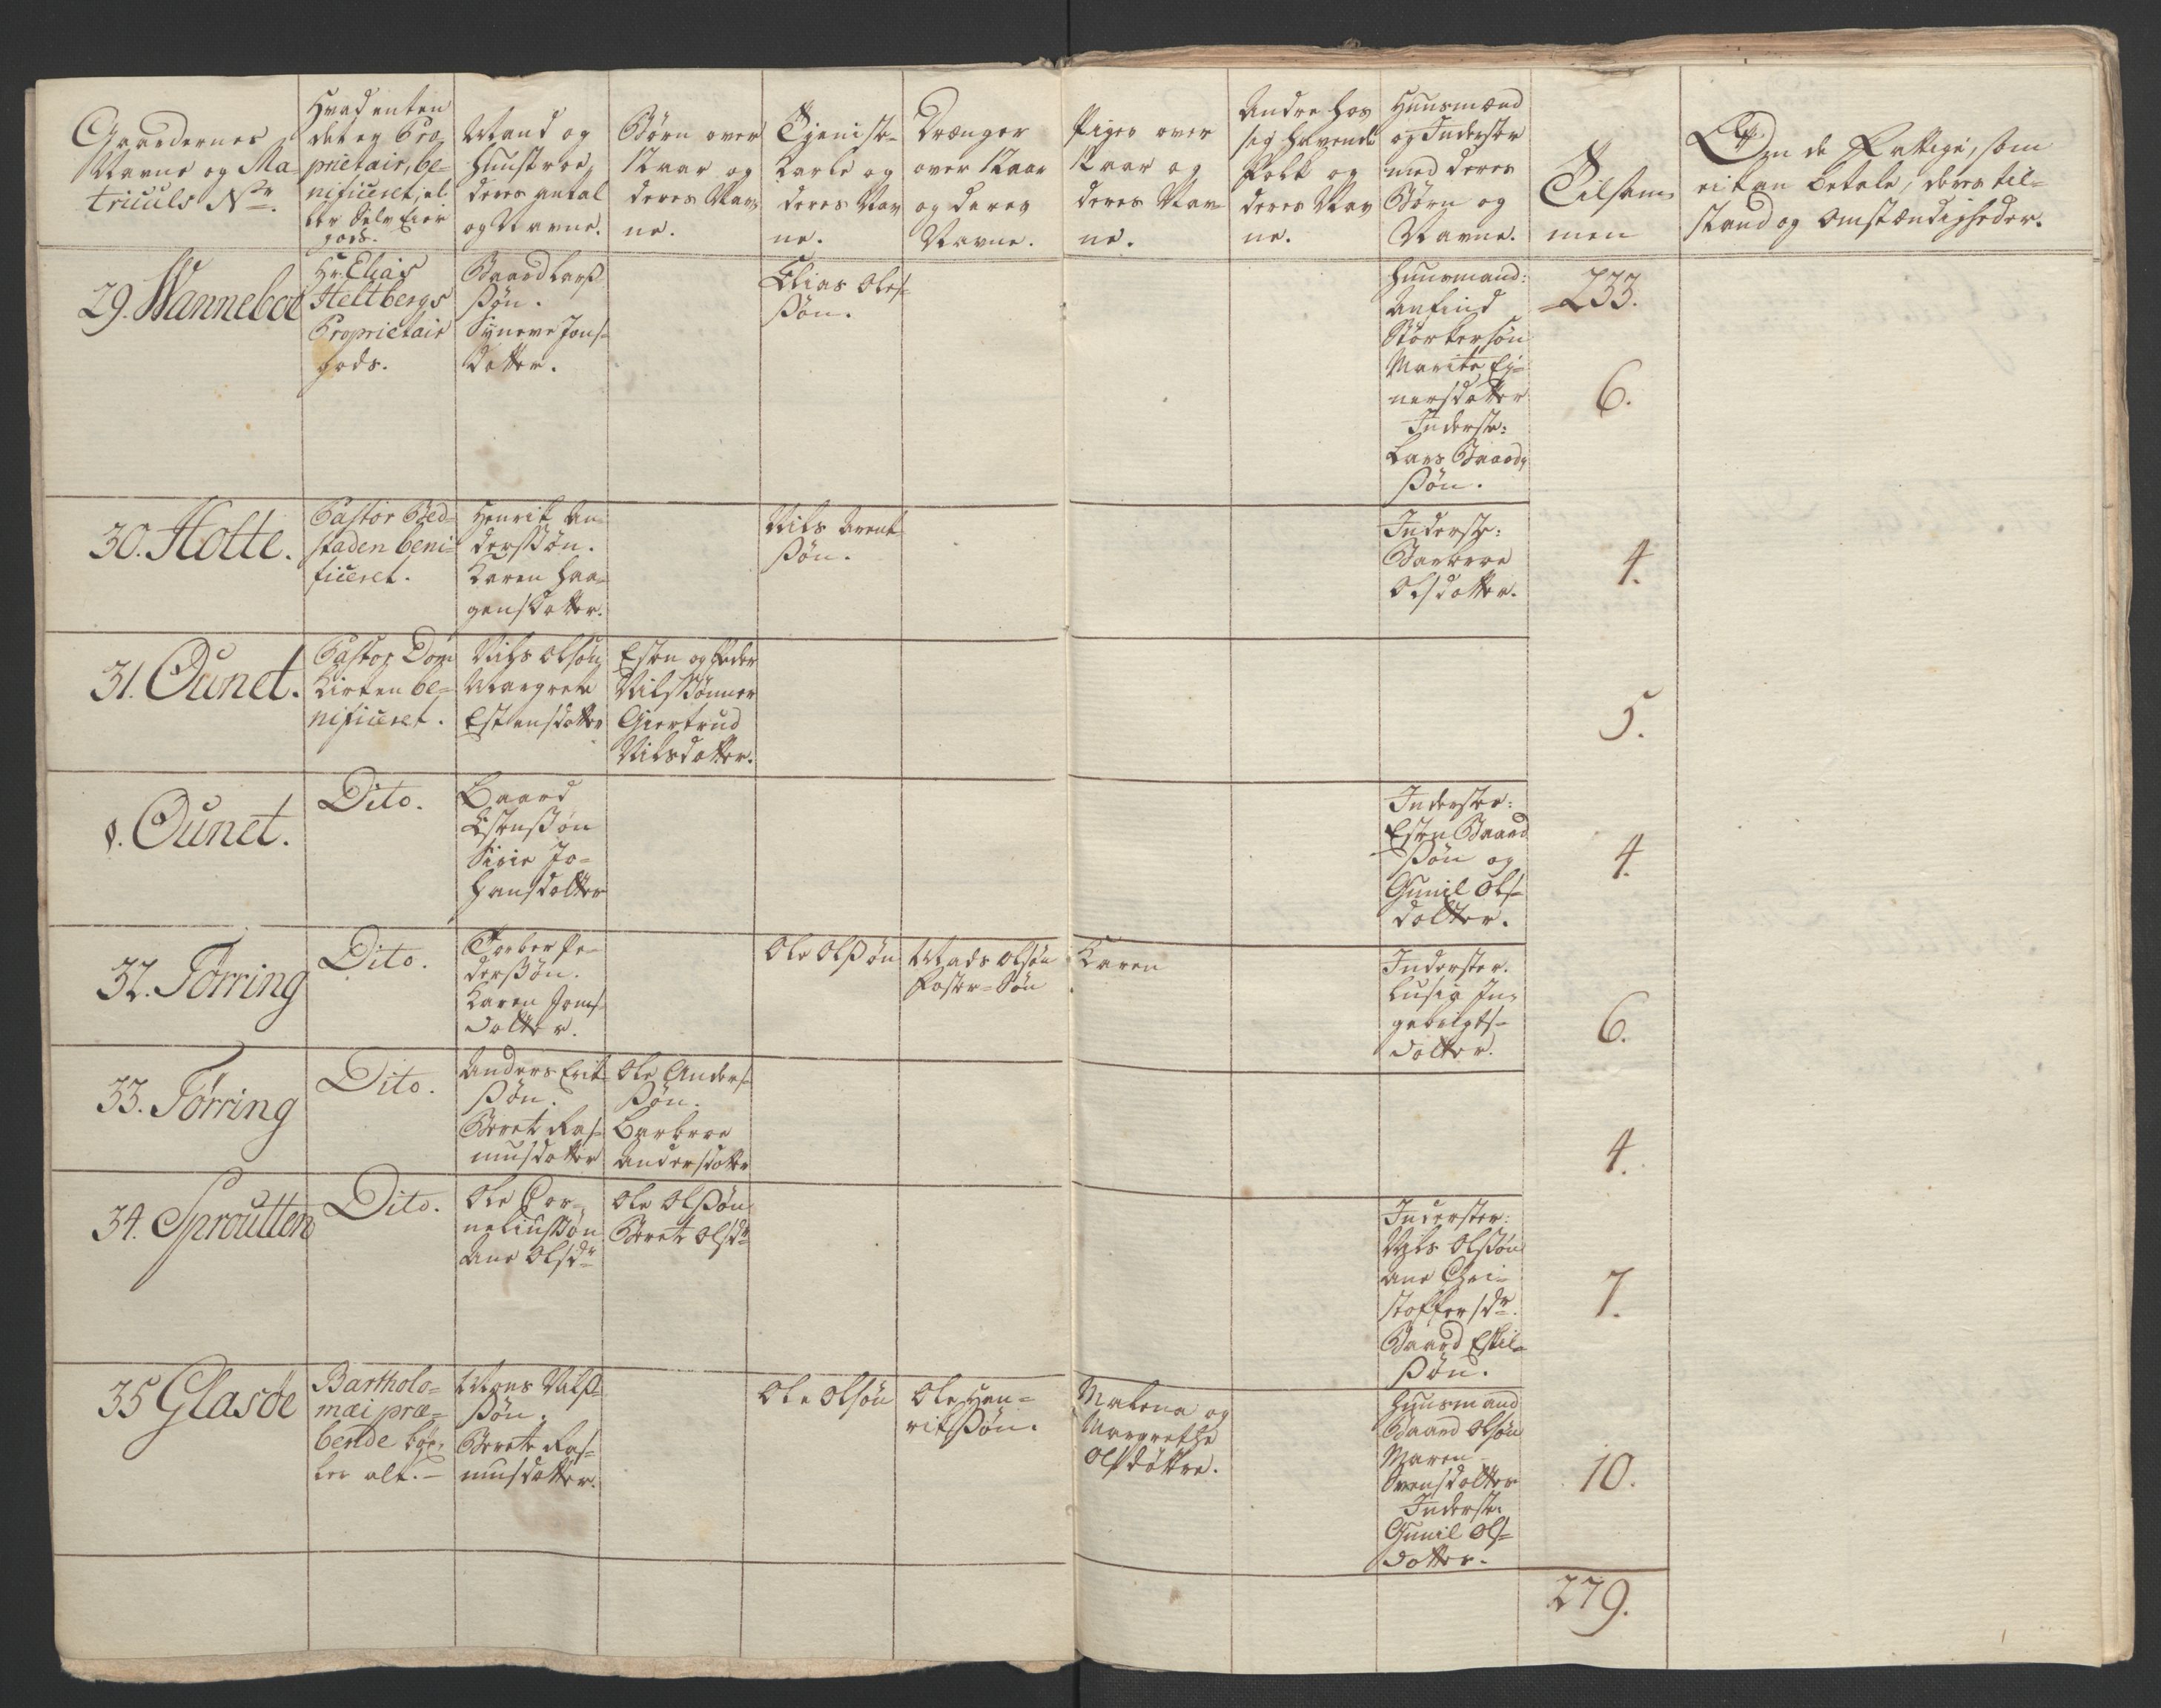 Gaardernes
Navne og Ma
triculs Nr.
Hvad enten
det er Pro
prietair, be-
nificeret, el
ler Selv Eier
gods.
Mand og
Hunstroe,
deres antal
og Navne.
Børn over
12 aar og
deres Nav
ne.
Tieniste-
Karle og
deres Nav
ne.
Drænger
over 12 aar
og deres
Navne.
Piger over
12 aar og
deres Nav-
ne.
Andre hos
sig havende
Folk og
deres Nav
ne.
Huusmænd
og Inderster
med deres
Børn og
Navne.
Tilsam-
men
Om de Fattige, som
ei kan betale, deres til-
stand og Omstændigheder.
29. Wanneboe
Hr. Elias
Heltbergs
Proprietair
gods.
Baard Lars
søn.
Syneve Jons-
dotter.
Elias Ols-
søn.
Huusmand:
Anfind
Størkersøn
Marite Ej-
nersdotter
Inderste:
Lars Baards
søn.
233.
6.
30. Hotte.
Pastor Bed-
staden beni-
ficeret.
Henrik An-
derssøn.
Karen Haa-
gensdotter.
Nils Arent
søn.
Inderste:
Barbroe
Olsdotter.
4.
31. Ounet.
Pastor Dom
Kirken be-
nificeret.
Nils Olsøn
Margrete
Estensdotter
Esten og Peder
Nilssønner
Giertrud
Nilsdotter.
5.
8. Ounet.
Dito.
Baard
Estenssøn
Sirie Jo-
hansdotter
Inderster:
Esten Baard
søn og
Gunil Ols-
dotter.
4.
32. Tørring
Dito.
Torber Pe-
derssøn.
Karen Jons-
dotter.
Ole Olssøn
Mads Olsøn
Foster-Søn
Karen
Inderster.
Lusia In-
gebrigts-
dotter.
6.
33. Tørring
Dito.
Anders Erik-
søn.
Beret Ras-
musdotter
Ole Anders-
søn.
Barbroe
Andersdotter
4.
34. Sproutten
Dito.
Ole Cor-
neliussøn
Ane Olsdr
Ole Olssøn
Beret Olsdr
Inderster:
Nils Olssøn
Ane Chri-
stoffersdr.
Baard Eskil-
søn.
7.
35 Glasøe
Bartholo-
mæi præ-
bende

Mons Nils-
søn.
Berete Ras-
musdotter.
Ole Olsøn
Ole Hen-
rikssøn.
Malena og
Margrethe
Olsdøttre.
Huusmand
Baard Olsøn
Maren
Svensdotter
Inderste.
Gunil Ols-
dotter.
10.
279.